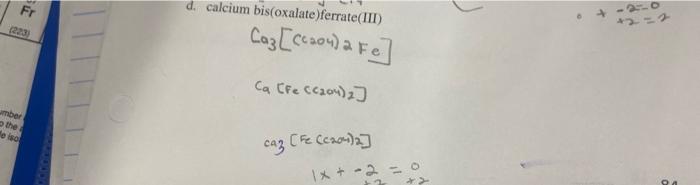 Fr
(223)
d. calcium bis(oxalate)ferrate(III)
Ca3[(C2O4)2Fe]
Ca [Fe(C2O4)2]
Ca3 [Fe(C2O4)2]
1x + -2 = 0
+2 +2
+ -2=0
+2=2